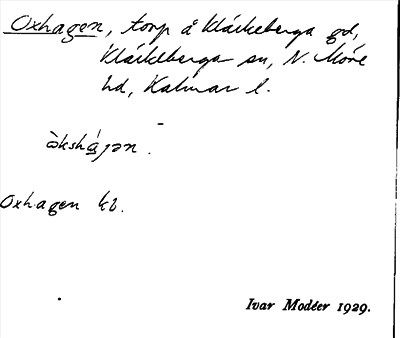 Oxhagen, torp å Kläckeberga gd,
Kläckeberga sn, N. Möre
hd, Kalmar l.
òkshá̱gən.
Oxhagen kb.
Ivar Modéer 1929.